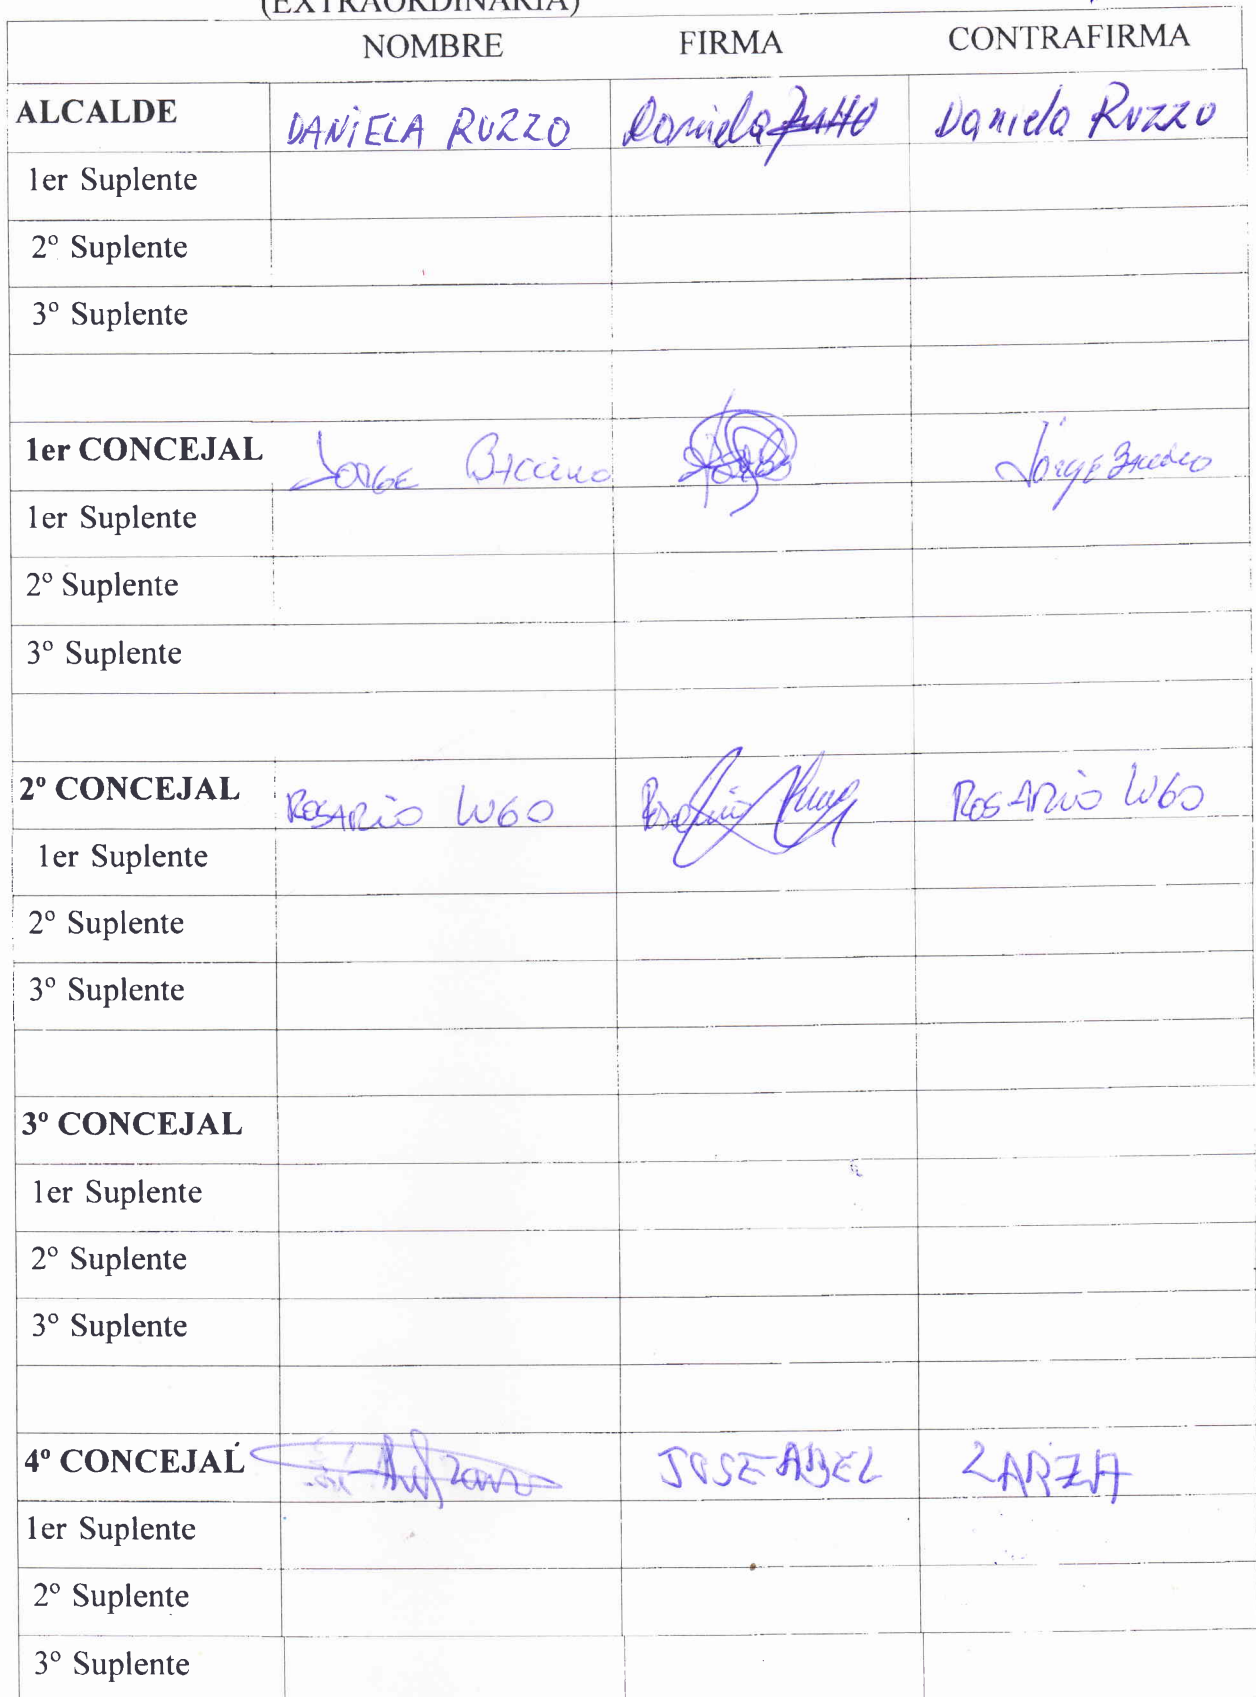 (EXTRAORDINARIA)
NOMBRE FIRMA CONTRAFIRMA
ALCALDE DANIELA RUZZO Daniela Ruzzo Daniela Ruzzo
1er Suplente
2º Suplente
3º Suplente
1er CONCEJAL JORGE Baccino Jorge Baccino
1er Suplente
2º Suplente
3º Suplente
2º CONCEJAL ROSARIO LUGO Rosario Lugo ROSARIO LUGO
1er Suplente
2º Suplente
3º Suplente
3º CONCEJAL
1er Suplente
2º Suplente
3º Suplente
4º CONCEJAL JOSE ABEL ZARZA
1er Suplente
2º Suplente
3º Suplente